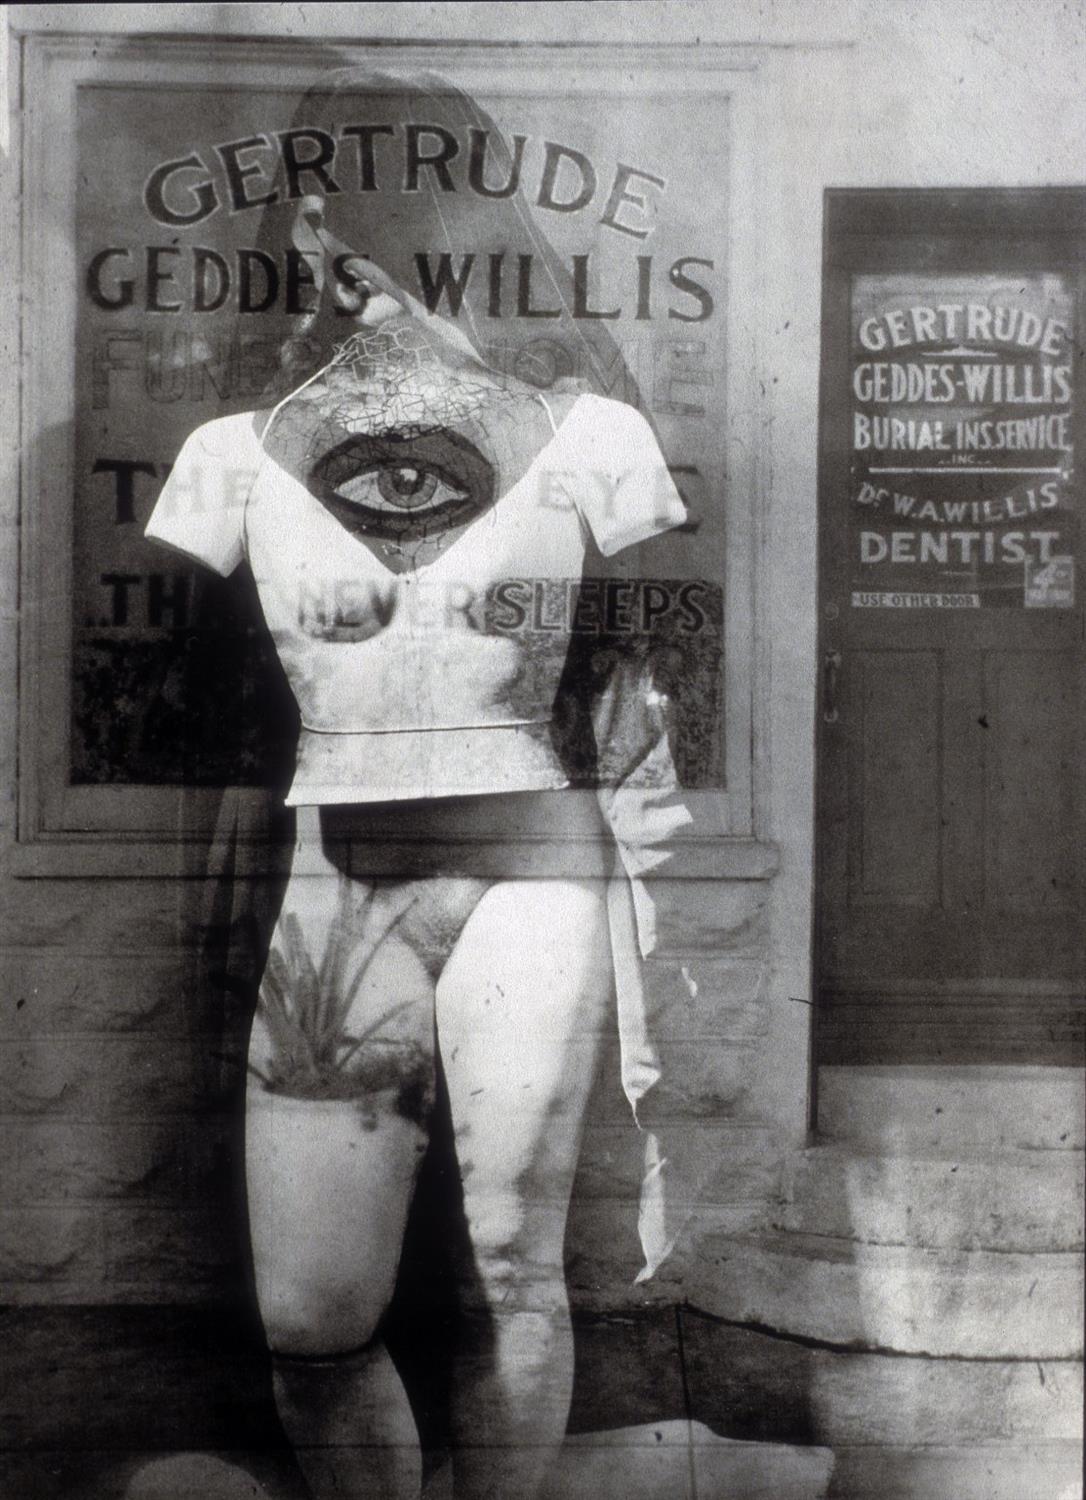 GERTRUDE
GEDDES WILLIS
FUNERAL HOME
THE EYE
NEVER SLEEPS
GERTRUDE
GEDDES-WILLIS
BURIAL INS.SERVICE
INC.
Dr W.A.WILLIS
DENTIST
USE OTHER DOOR